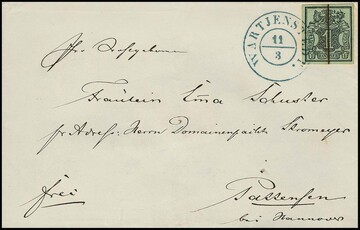 WARTJENST
11
3
1
Fräulein Lina Schuster
pr Adress: Herrn Domainenpächter Stromeyer
frei
Pattensen
bei Hannover